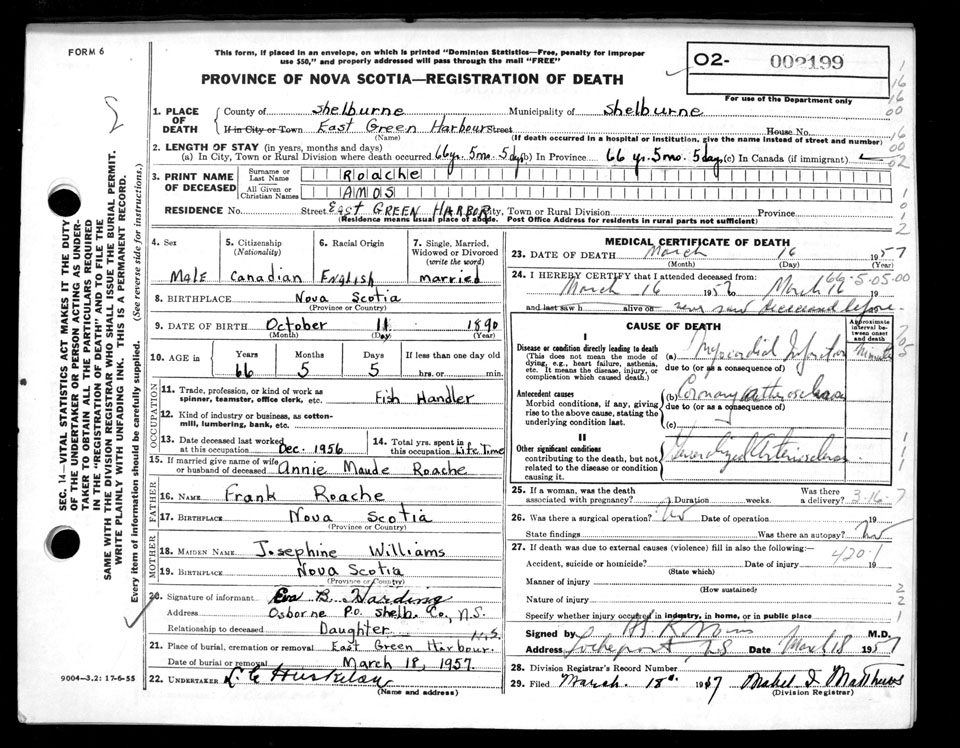 FORM 6
This form, if placed in an envelope, on which is printed "Dominion Statistics—Free, penalty for improper
use $50," and properly addressed will pass through the mail "FREE"
PROVINCE OF NOVA SCOTIA—REGISTRATION OF DEATH
O2- 002199
For use of the Department only
SEC. 14—VITAL STATISTICS ACT MAKES IT THE DUTY
OF THE UNDERTAKER OR PERSON ACTING AS UNDER-
TAKER TO OBTAIN ALL THE PARTICULARS REQUIRED
IN THE "REGISTRATION OF DEATH" AND TO FILE THE
SAME WITH THE DIVISION REGISTRAR WHO SHALL ISSUE THE BURIAL PERMIT.
WRITE PLAINLY WITH UNFADING INK. THIS IS A PERMANENT RECORD.
Every item of information should be carefully supplied. (See reverse side for instructions.)
1. PLACE OF DEATH
County of Shelburne Municipality of Shelburne
If in City or Town East Green Harbour Street House No.
(Name) (If death occurred in a hospital or institution, give the name instead of street and number)
2. LENGTH OF STAY (in years, months and days)
(a) In City, Town or Rural Division where death occurred 66 yr. 5 mo. 5 days (b) In Province 66 yr. 5 mo. 5 day (c) In Canada (if immigrant)
3. PRINT NAME OF DECEASED
Surname or Last Name Roache
All Given or Christian Names AMOS
RESIDENCE No. Street EAST GREEN HARBOR City, Town or Rural Division Province
(Residence means usual place of abode. Post Office Address for residents in rural parts not sufficient)
4. Sex 5. Citizenship (Nationality) 6. Racial Origin 7. Single, Married, Widowed or Divorced (write the word)
Male Canadian English married
8. BIRTHPLACE Nova Scotia
(Province or Country)
9. DATE OF BIRTH October 11 1890
(Month) (Day) (Year)
10. AGE in Years Months Days If less than one day old
66 5 5 hrs. or min.
OCCUPATION
11. Trade, profession, or kind of work as
spinner, teamster, office clerk, etc. Fish Handler
12. Kind of industry or business, as cotton-
mill, lumbering, bank, etc.
13. Date deceased last worked
at this occupation Dec. 1956
14. Total yrs. spent in
this occupation Life Time
15. If married give name of wife
or husband of deceased Annie Maude Roache
FATHER
16. NAME Frank Roache
17. BIRTHPLACE Nova Scotia
(Province or Country)
MOTHER
18. MAIDEN NAME Josephine Williams
19. BIRTHPLACE Nova Scotia
(Province or Country)
20. Signature of informant Eva B. Harding
Address Osborne P.O. Shelb. Co., N.S.
Relationship to deceased Daughter
N.S.
21. Place of burial, cremation or removal East Green Harbour.
Date of burial or removal March 18, 1957.
22. UNDERTAKER
(Name and address)
9004—3.2: 17-6-55
MEDICAL CERTIFICATE OF DEATH
23. DATE OF DEATH March 16 1957
(Month) (Day) (Year)
24. I HEREBY CERTIFY that I attended deceased from:
66-5-05-00
March 16 1957 March 16 19
and last saw h alive on never saw deceased before
CAUSE OF DEATH
Approximate interval between onset and death
I
Disease or condition directly leading to death
(This does not mean the mode of
dying, e.g., heart failure, asthenia,
etc. It means the disease, injury, or
complication which caused death.)
(a) Myocardial Infarction Minutes
due to (or as a consequence of)
Antecedent causes
Morbid conditions, if any, giving
rise to the above cause, stating the
underlying condition last.
(b) Coronary atherosclerosis
due to (or as a consequence of)
(c)
II
Other significant conditions
contributing to the death, but not
related to the disease or condition
causing it.
Generalized Arteriosclerosis
25. If a woman, was the death
associated with pregnancy? Duration weeks. Was there a delivery?
3-16-7
26. Was there a surgical operation? No Date of operation 19
State findings Was there an autopsy? No
27. If death was due to external causes (violence) fill in also the following:—
420.1
Accident, suicide or homicide? Date of injury 19
(State which)
Manner of injury
(How sustained)
Nature of injury
Specify whether injury occurred in industry, in home, or in public place
Signed by M.D.
Address Lockeport N.S. Date March 18 1957
28. Division Registrar's Record Number
29. Filed March 18 1957 Mabel I. Matthews
(Division Registrar)